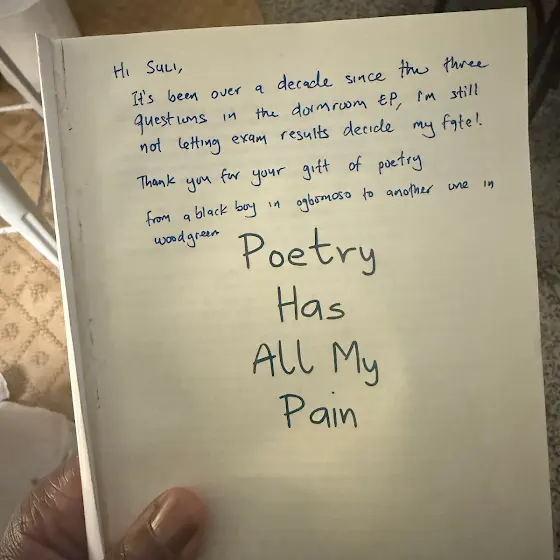 Hi SULI,
It's been over a decade since the three
questions in the dormroom EP, I'm still
not letting exam results decide my fate!.
Thank you for your gift of poetry
from a black boy in ogbomoso to another one in
woodgreen
Poetry
Has
All My
Pain